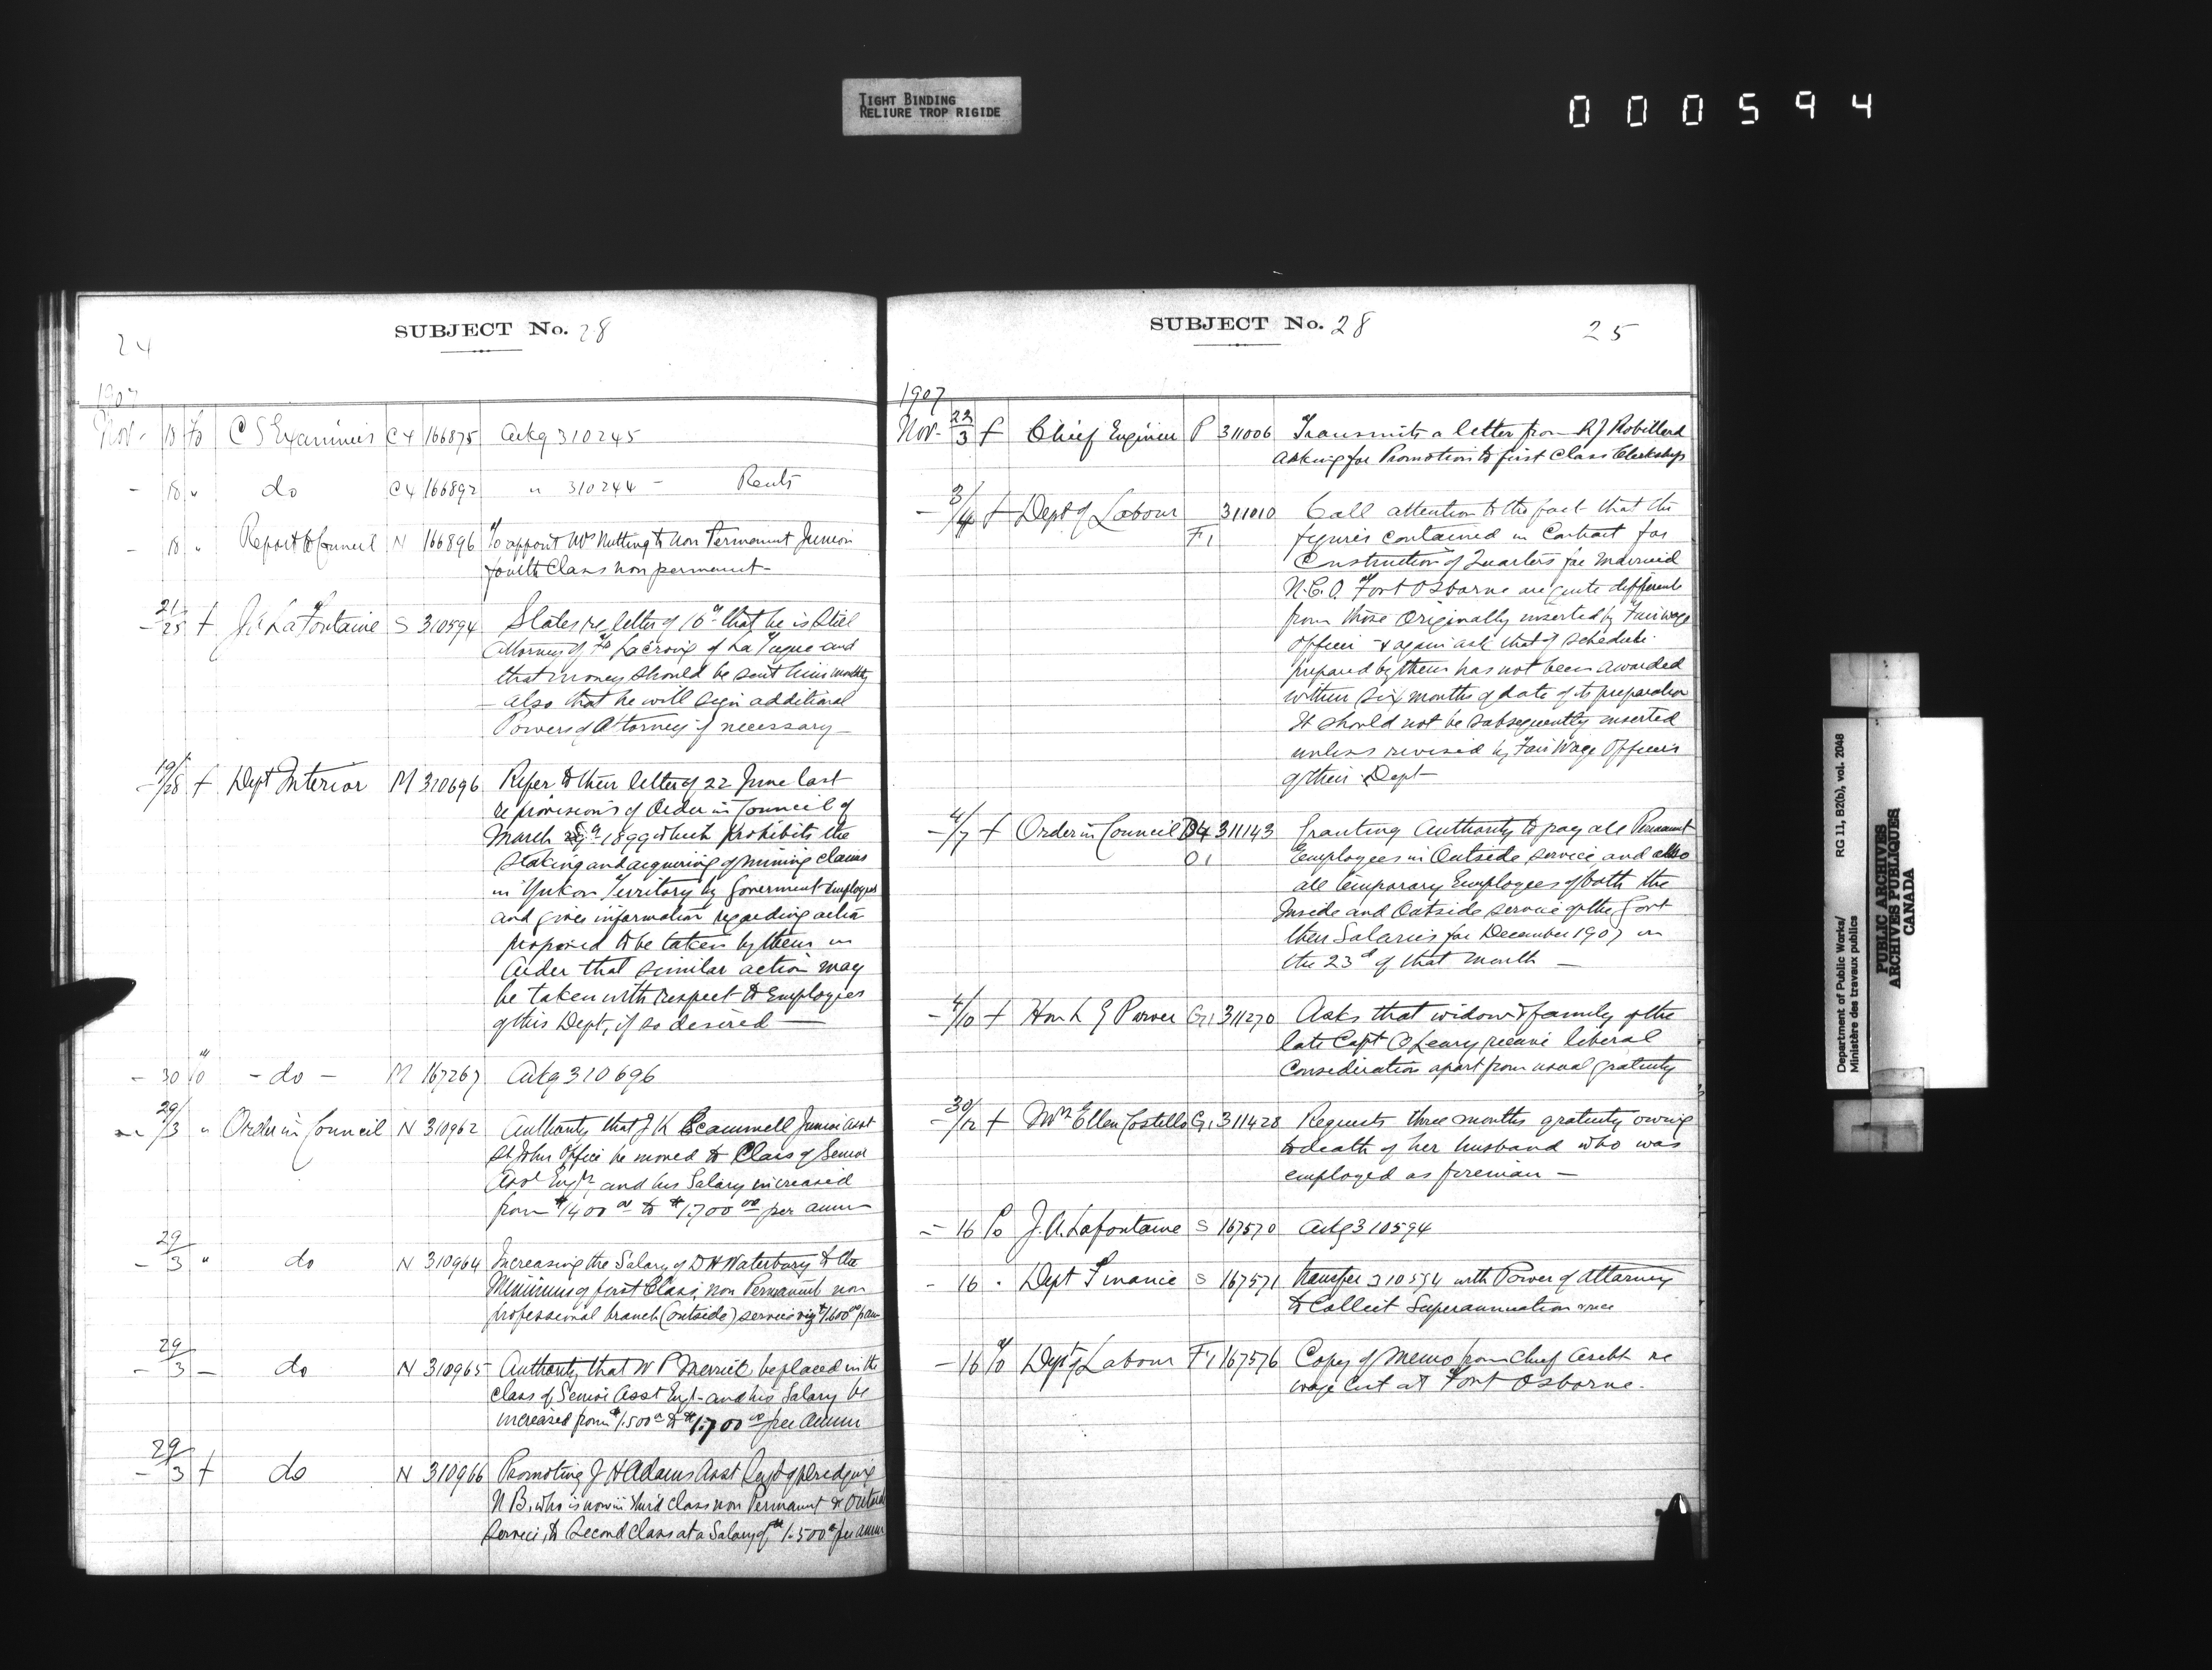 TIGHT BINDING
RELIURE TROP RIGIDE
000594
24
SUBJECT No. 28
1907
Nov - 18 To C S Examiners C4 166875 Ackg 310245
- 18 " do C4 166892 " 310244 - Rents
- 18 " Report to Council N 166896 To appoint Nutting to Non Permanent Junior
fourth Class non permanent -
21/25 f J. A. LaFontaine S 310594 States re letter of 16th that he is still
Attorney of Lacroix of La Tuque and
that money should be sent him monthly
- also that he will sign additional
Powers of Attorney if necessary -
- 19/28 f Dept Interior M 310696 Refer to their letter of 22 June last
re provisions of Order in Council of
March 1899 which prohibits the
staking and acquiring of mining claims
in Yukon Territory by Government Employees
and gives information regarding action
proposed to be taken by them in
order that similar action may
be taken with respect to Employees
of this Dept, if so desired -
- 30 To - do - M 167267 Ackg 310696
- 29/3 " Order in Council N 310962 Authority that J K Scammell Junior asst
St John Office be moved to Class of Senior
Asst Engr and his Salary increased
from $1400 00 to $1.700 00 per annum
- 29/3 " do N 310964 Increasing the Salary of D H Waterbury to the
Minimum of first Class, non Permanent non
professional branch (outside) service viz $1.600 00 p ann
- 29/3 - do N 310965 Authority that W P Merrick be placed in the
class of Senior Asst Engr and his Salary be
increased from $1.500 00 to $1.700 00 per annum
- 29/3 f do N 310966 Promoting J H Adams Asst Supt of Dredging
N B, who is now in third class non Permanent & Outside
Service, to Second Class at a Salary of $1.500 00 per annum
SUBJECT No. 28
25
1907
Nov - 22/3 f Chief Engineer P 311006 Transmits a letter from R J Robillard
asking for Promotion to first Class Clerkship
- 3/4 f Dept of Labour F1 311010 Call attention to the fact that the
figures contained in Contract for
Construction of Quarters for Married
N.C.O. Fort Osborne are quite different
from those Originally inserted by Fair Wage
Officer & again ask that if schedule
prepared by them has not been awarded
within six months of date of its preparation
It should not be subsequently inserted
unless revised by Fair Wage Officers
of their Dept -
- 4/7 f Order in Council D4 311143 Granting Authority to pay all Permanent
O1 Employees in Outside service and also
all temporary Employees of both the
Inside and Outside service of the Govt
their Salaries for December 1907 on
the 23d of that Month -
- 4/10 f Hon L G Power G1 311270 Asks that widow & family of the
late Capt O'Leary receive liberal
Consideration apart from usual gratuity
- 30/12 f Mrs Ellen Costello G1 311428 Requests three months gratuity owing
to death of her husband who was
employed as foreman -
- 16 To J. A. Lafontaine S 167570 Ackg 310594
- 16 " Dept Finance S 167571 transfer 310594 with Power of Attorney
to Collect Superannuation
- 16 To Dept of Labour F1 167576 Copy of Memo from Chief Archt re
wage list at Fort Osborne.
Department of Public Works/
Ministère des travaux publics
RG 11, B2(b), vol. 2048
PUBLIC ARCHIVES
ARCHIVES PUBLIQUES
CANADA